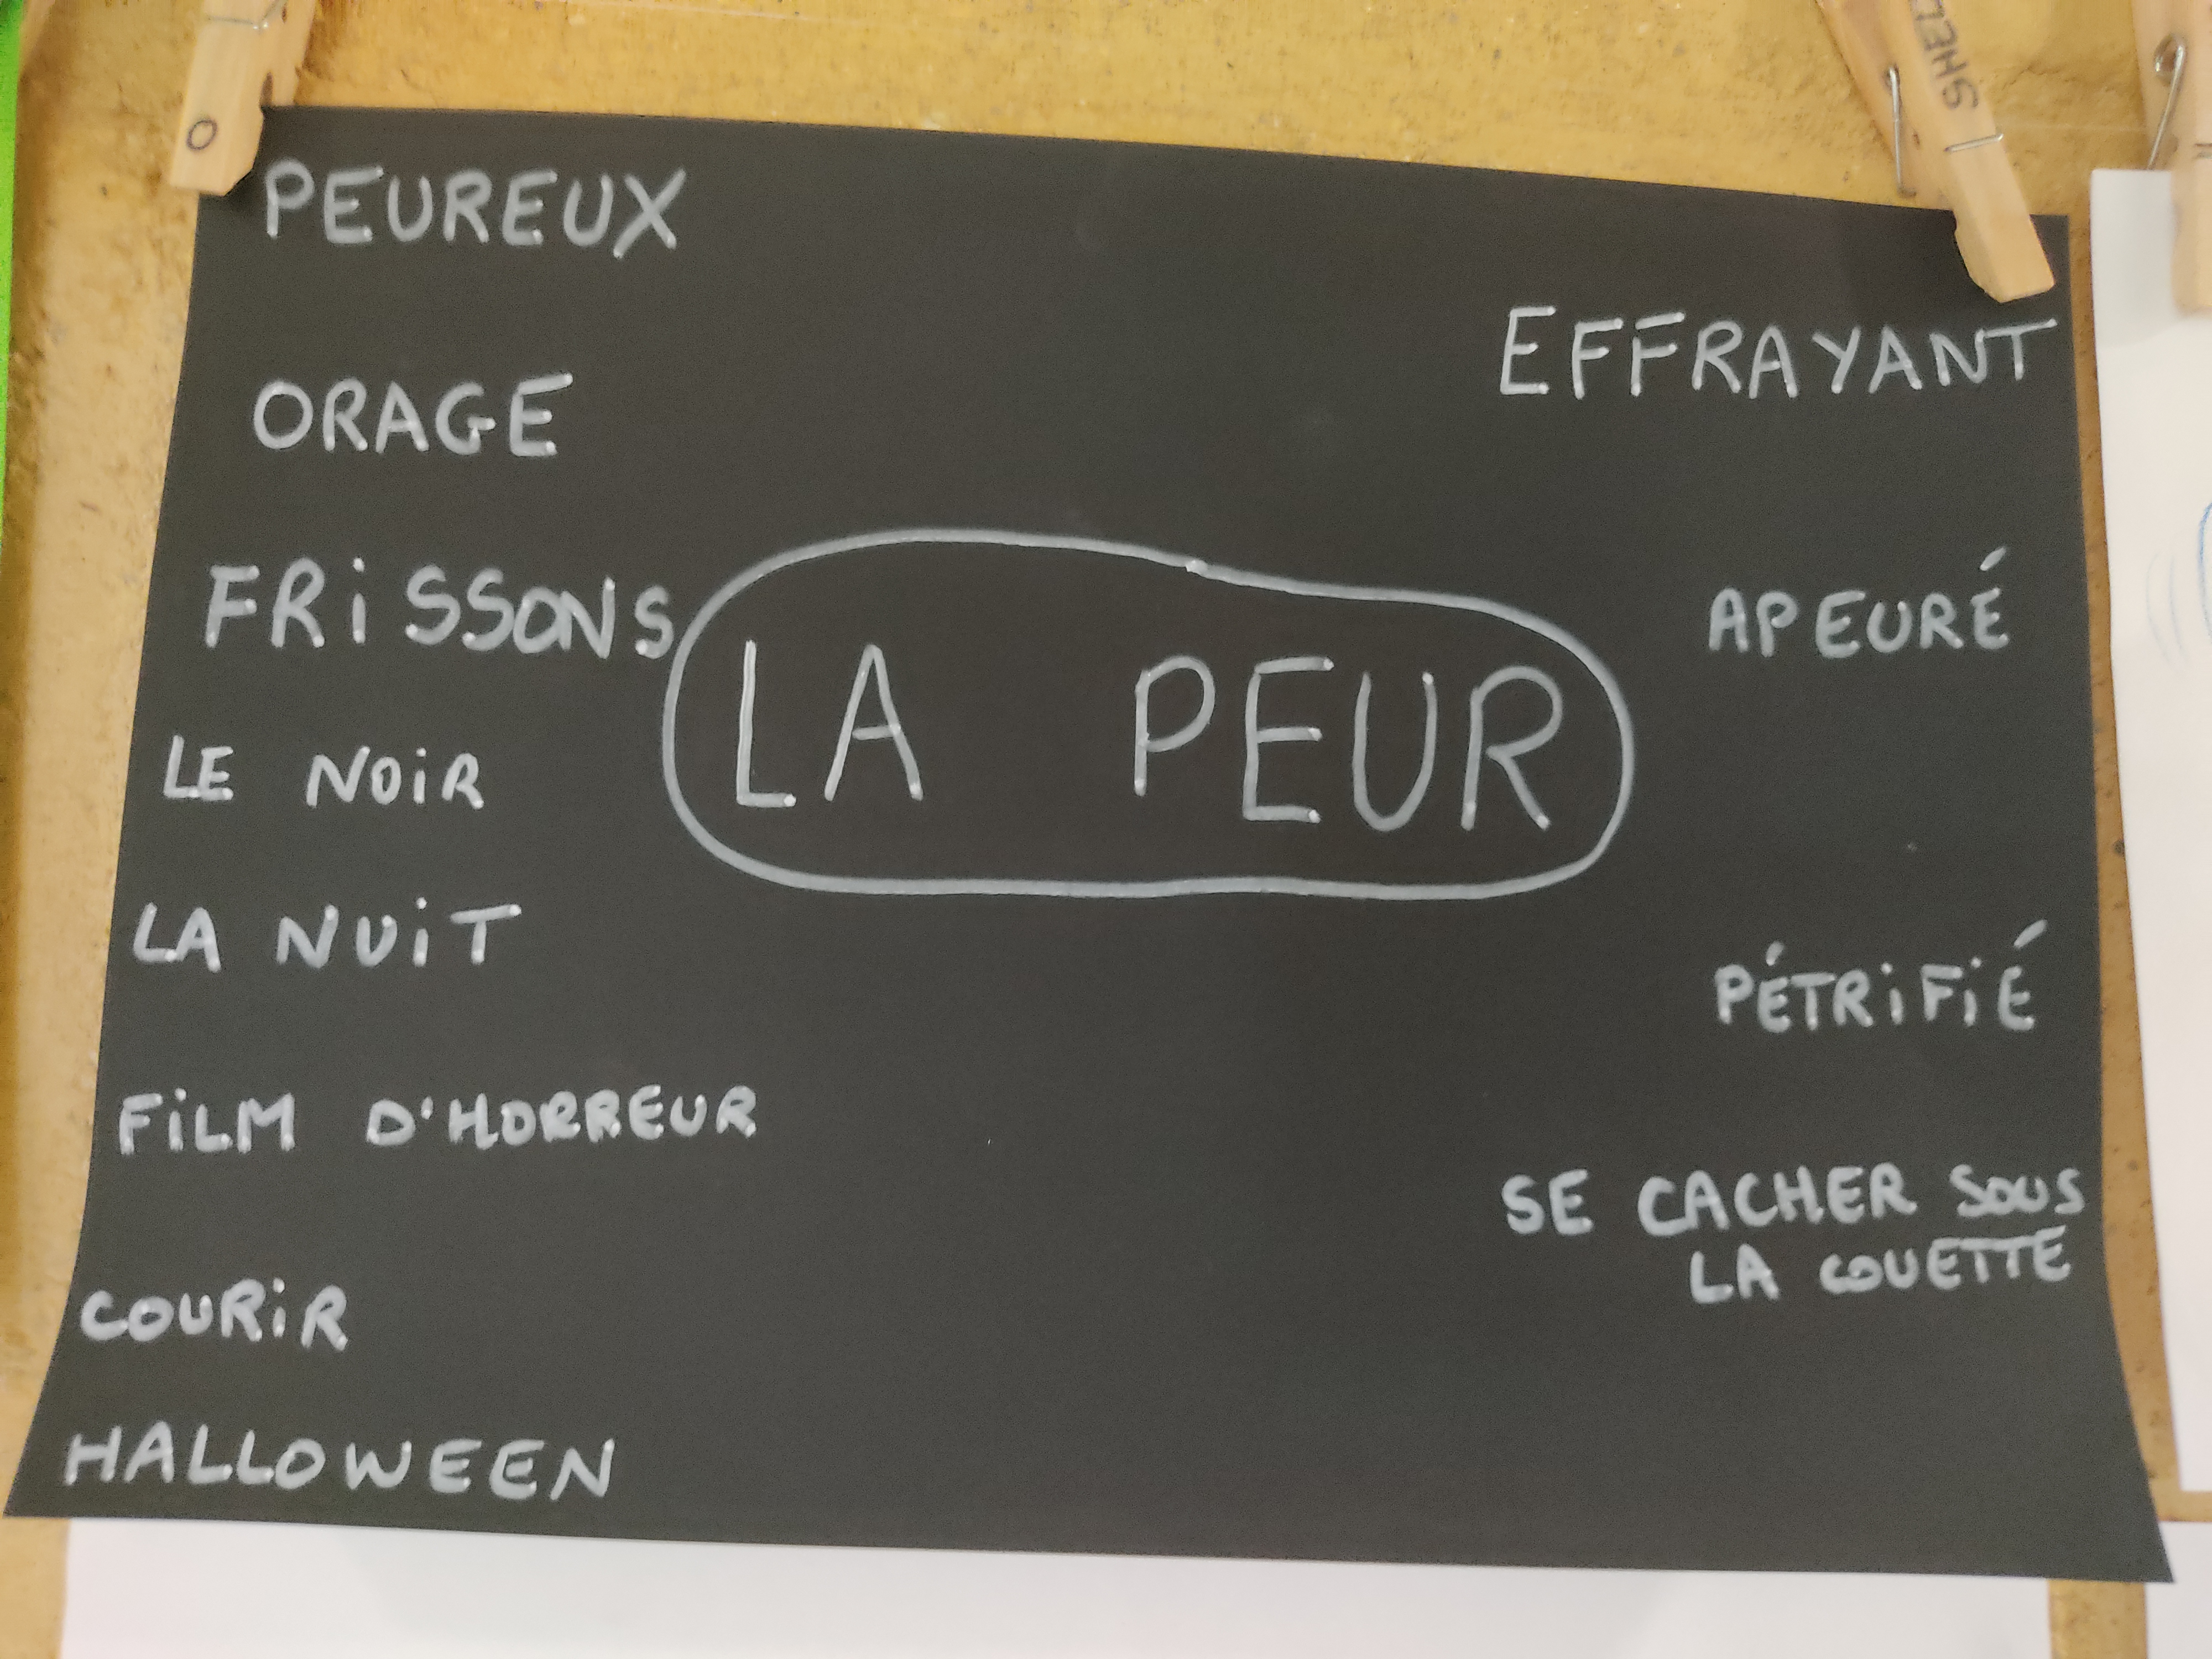 O
SHEL
PEUREUX
EFFRAYANT
ORAGE
FRiSSONS
APEURÉ
LA PEUR
LE NOiR
LA NUiT
PÉTRiFiÉ
FiLM D'HORREUR
SE CACHER SOUS
LA COUETTE
COURiR
HALLOWEEN